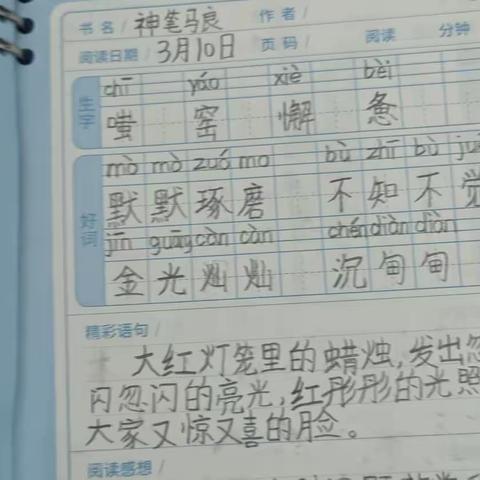 书名/ 神笔马良 作者/
阅读日期/ 3月10日 页码/ 阅读 分钟
生字
chī yáo xiè bèi
嗤 窑 懈 惫
好词
mò mò zuó mo bù zhī bù
默默琢磨 不知不觉
jīn guāng càn càn chén diàn diàn
金光灿灿 沉甸甸
精彩语句/
大红灯笼里的蜡烛,发出忽
闪忽闪的亮光,红彤彤的光照
大家又惊又喜的脸。
阅读感想/